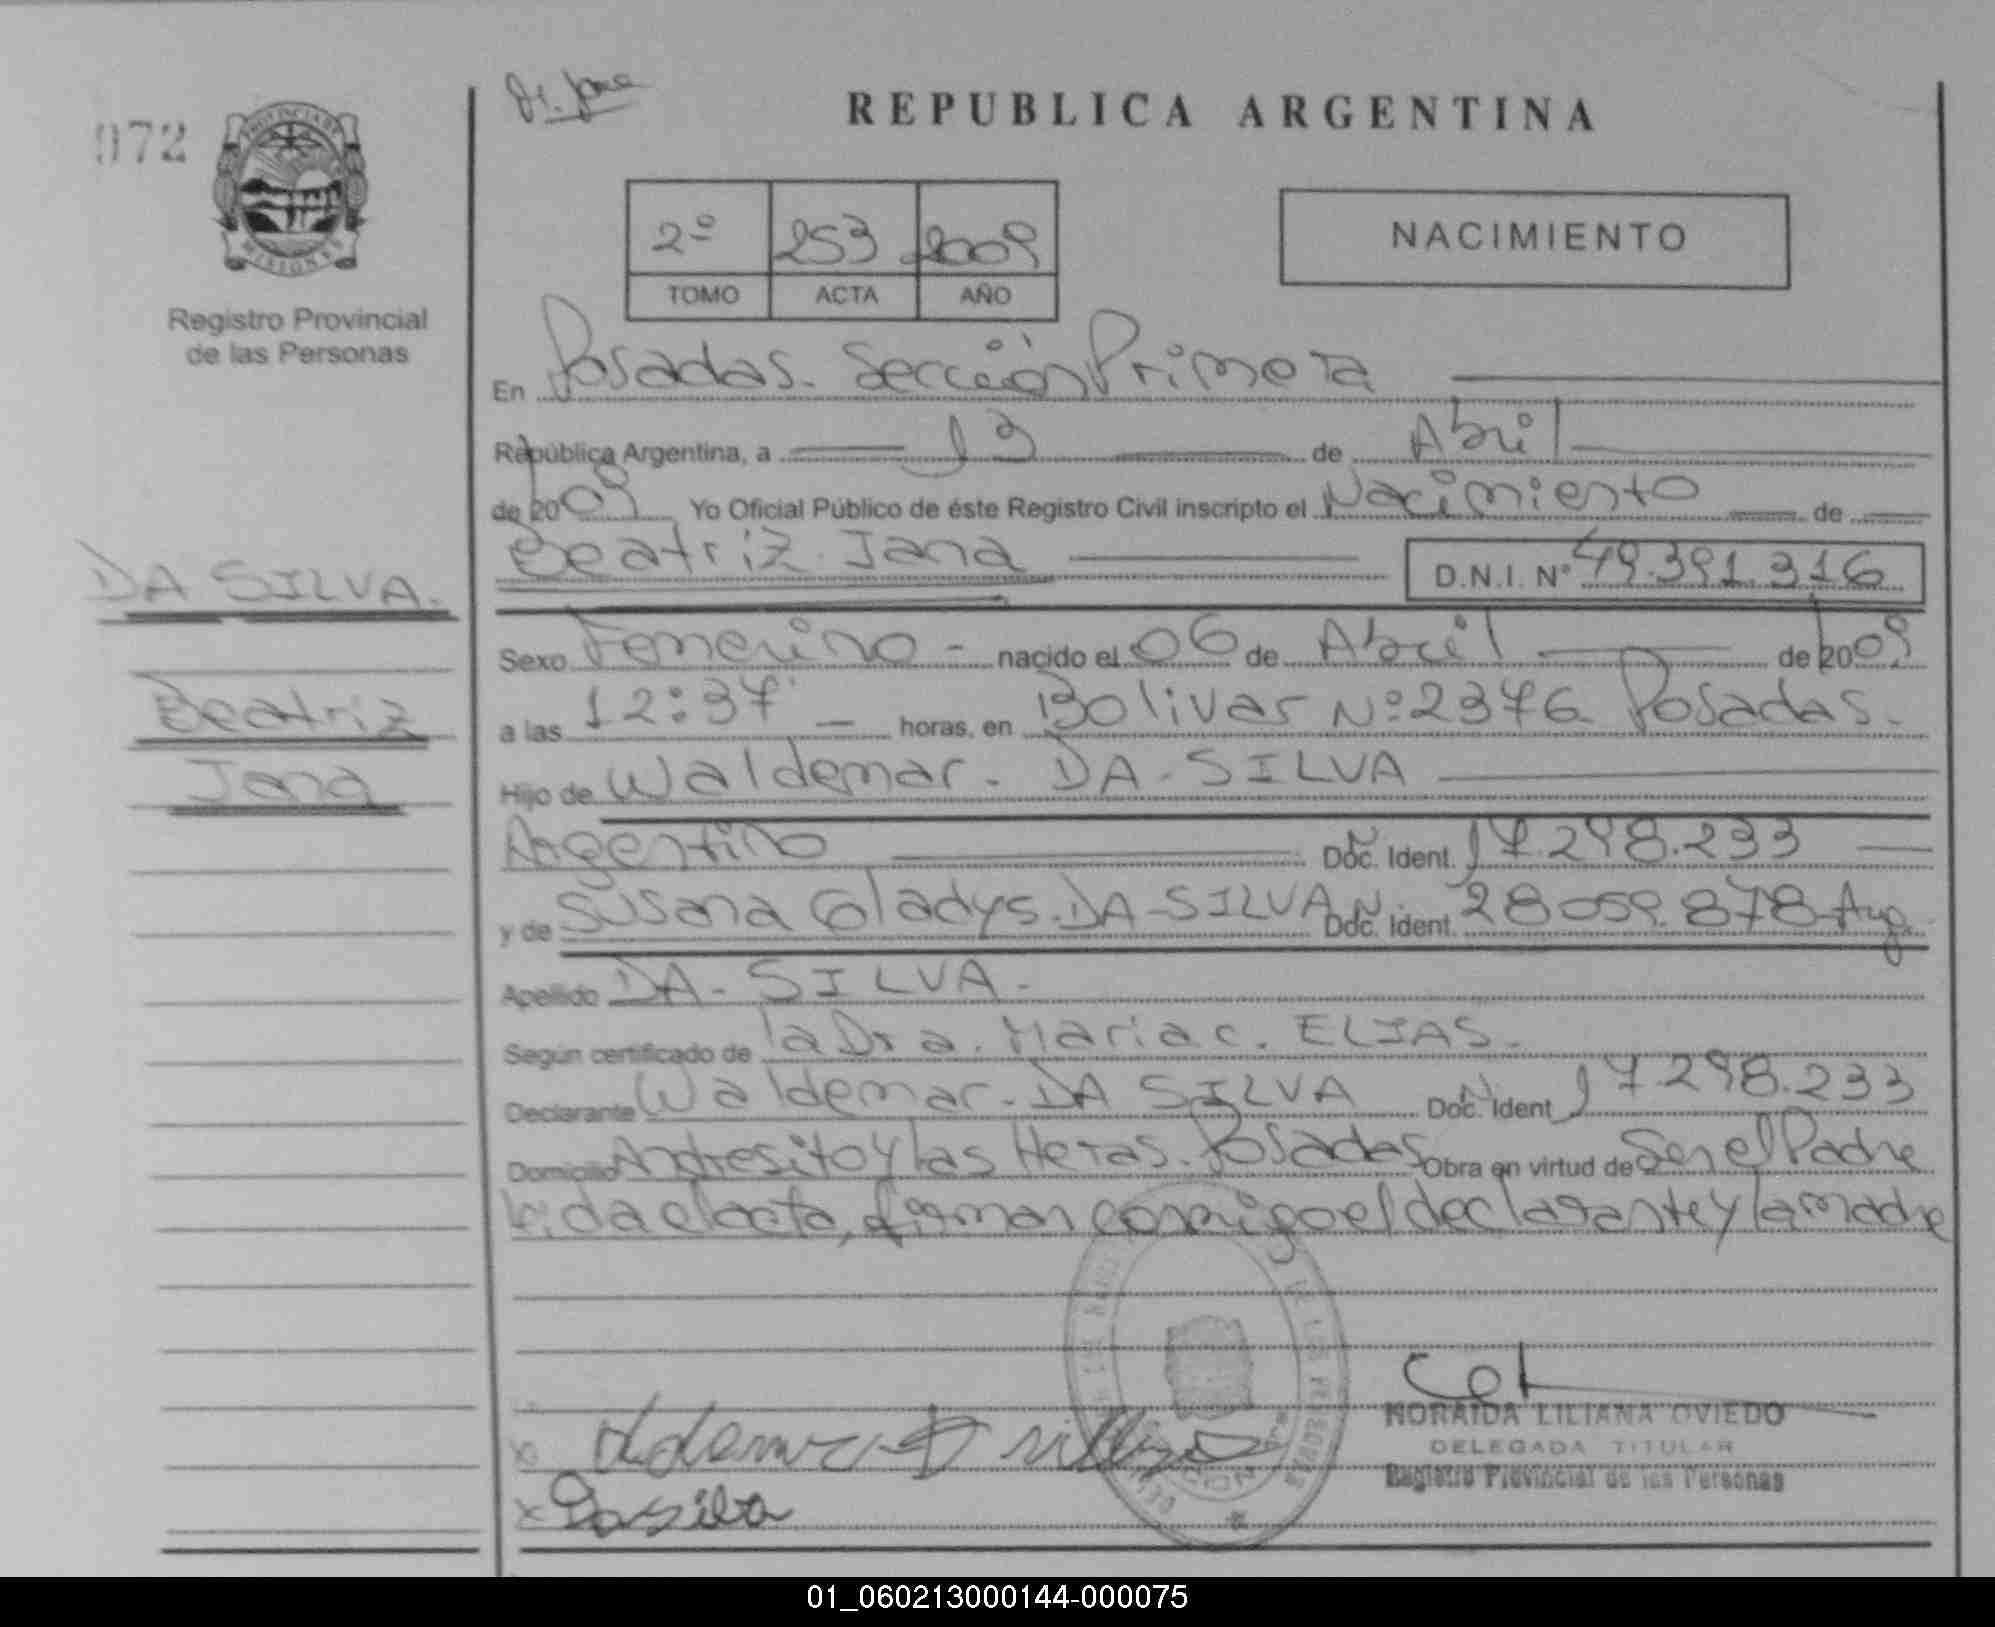 072
REPUBLICA ARGENTINA
PROVINCIA DE
MISIONES
Registro Provincial
de las Personas
2º 253 2009
TOMO ACTA AÑO
NACIMIENTO
En Posadas. Sección Primera
República Argentina, a 13 de Abril
de 2009 Yo Oficial Público de éste Registro Civil inscripto el Nacimiento de
Beatriz Jana D.N.I. Nº 49.391.316
DA SILVA.
Beatriz
Jana
Sexo Femenino - nacido el 06 de Abril de 2009
a las 12:37 horas, en Bolivar Nº 2376 Posadas.
Hijo de Waldemar. DA-SILVA
Argentino Doc. Ident. 17.298.233
y de Susana Gladys. DA-SILVA Doc. Ident. 28.059.878 Arg.
Apellido DA-SILVA.
Según certificado de la Dra. Maria C. ELIAS.
Declarante Waldemar. DA SILVA Doc. Ident 17.298.233
Domicilio Andresito y las Heras. Posadas Obra en virtud de Ser el Padre
leida el acta, firman conmigo el declarante y la madre
NORAIDA LILIANA OVIEDO
DELEGADA TITULAR
Registro Provincial de las Personas
x Da silva
01_060213000144-000075